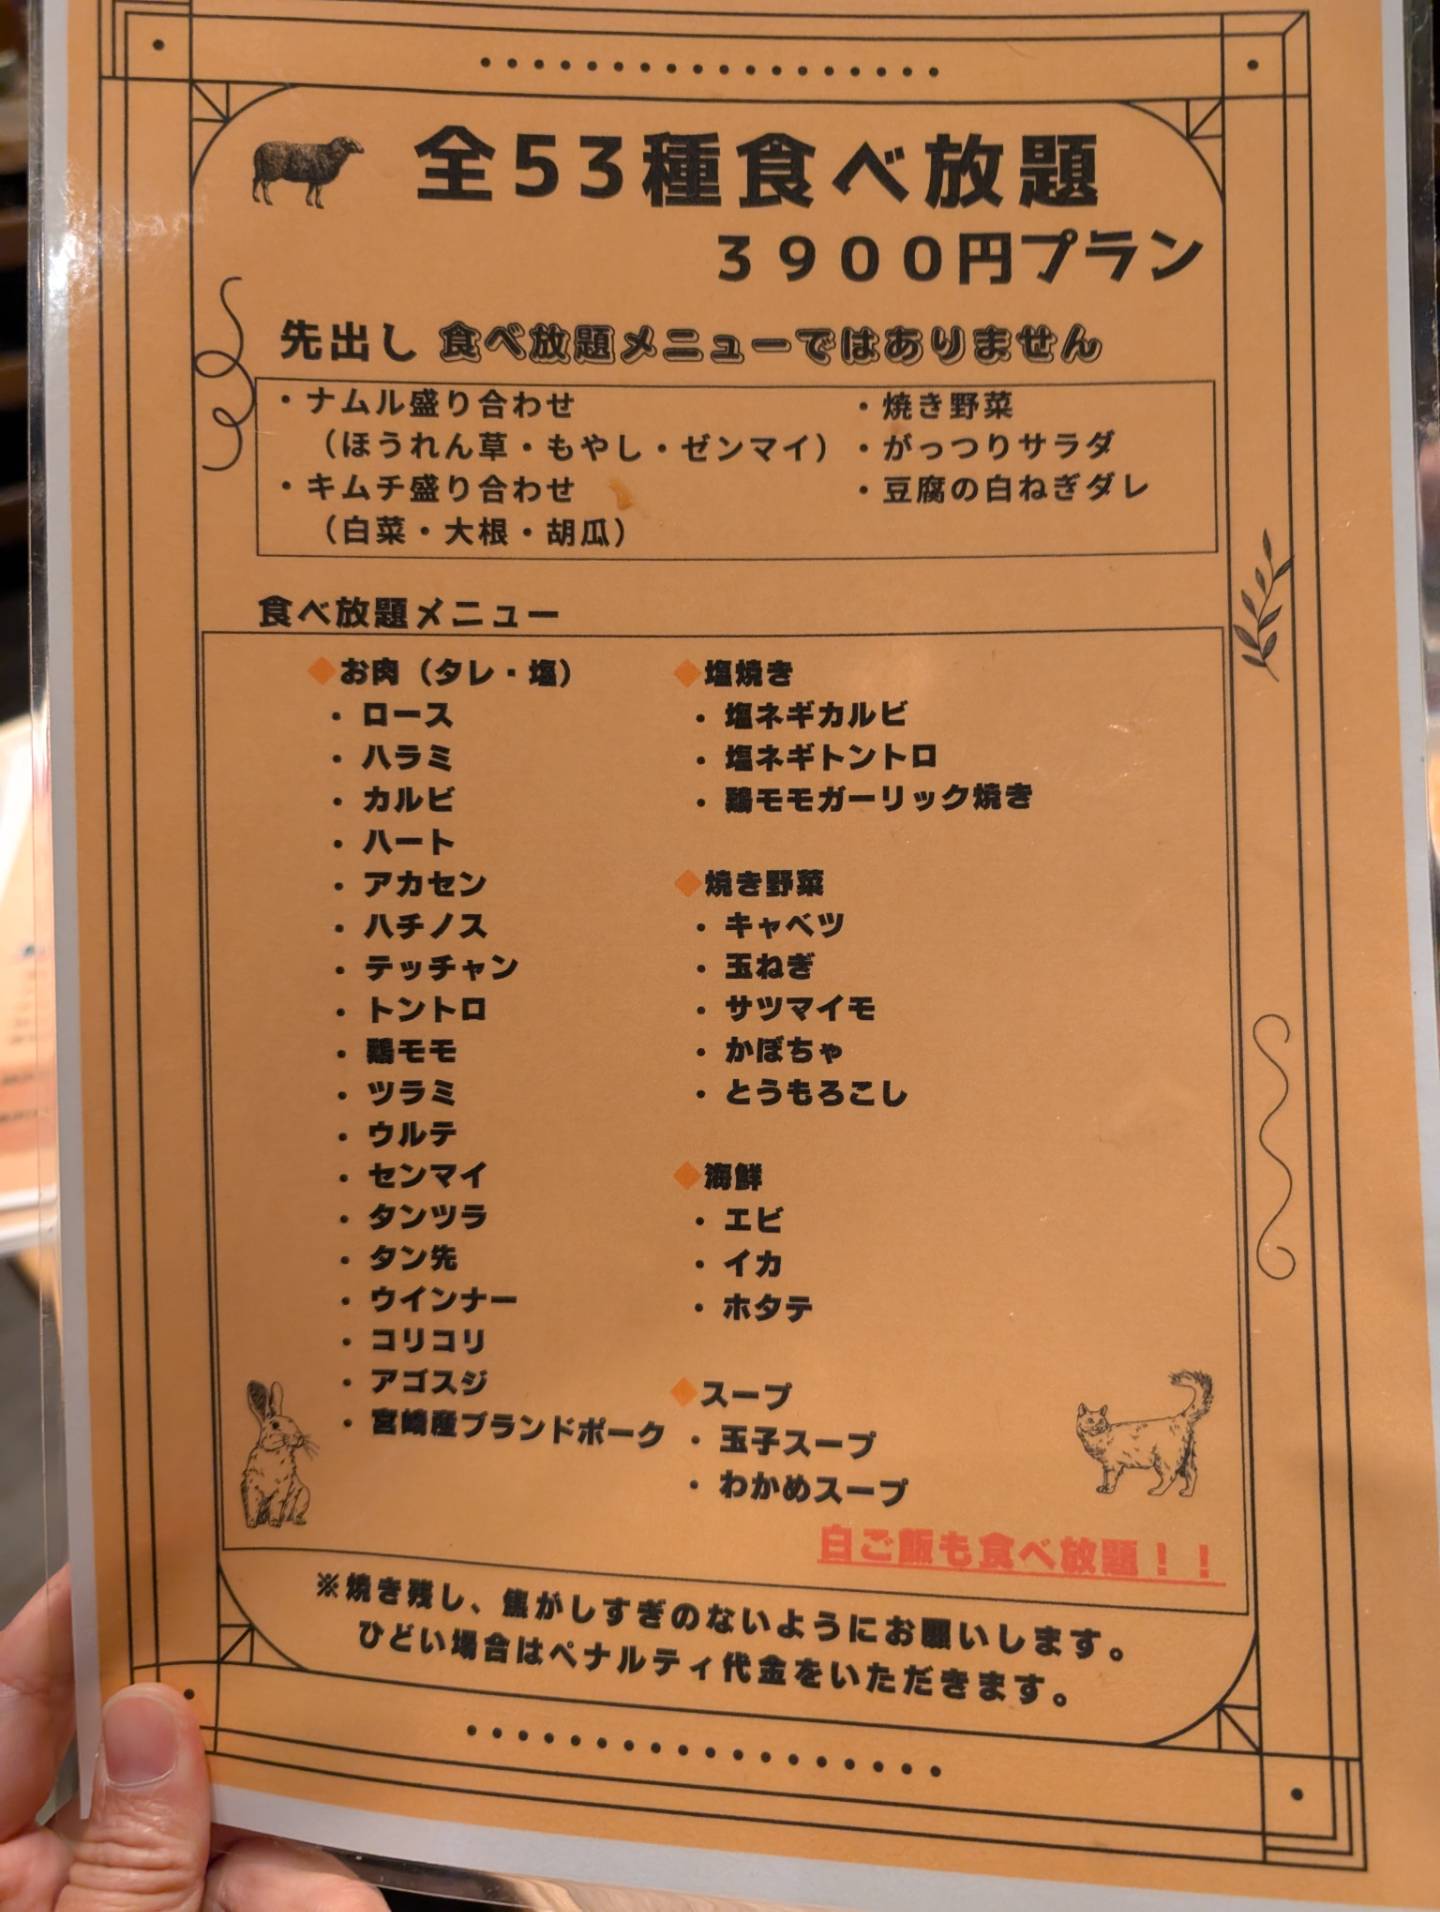 全53種食べ放題
3900円プラン
先出し 食べ放題メニューではありません
・ナムル盛り合わせ
（ほうれん草・もやし・ゼンマイ）
・キムチ盛り合わせ
（白菜・大根・胡瓜）
・焼き野菜
・がっつりサラダ
・豆腐の白ねぎダレ
食べ放題メニュー
◆お肉（タレ・塩）
・ロース
・ハラミ
・カルビ
・ハート
・アカセン
・ハチノス
・テッチャン
・トントロ
・鶏モモ
・ツラミ
・ウルテ
・センマイ
・タンツラ
・タン先
・ウインナー
・コリコリ
・アゴスジ
・宮崎産ブランドポーク
◆塩焼き
・塩ネギカルビ
・塩ネギトントロ
・鶏モモガーリック焼き
◆焼き野菜
・キャベツ
・玉ねぎ
・サツマイモ
・かぼちゃ
・とうもろこし
◆海鮮
・エビ
・イカ
・ホタテ
◆スープ
・玉子スープ
・わかめスープ
白ご飯も食べ放題！！
※焼き残し、焦がしすぎのないようにお願いします。
ひどい場合はペナルティ代金をいただきます。